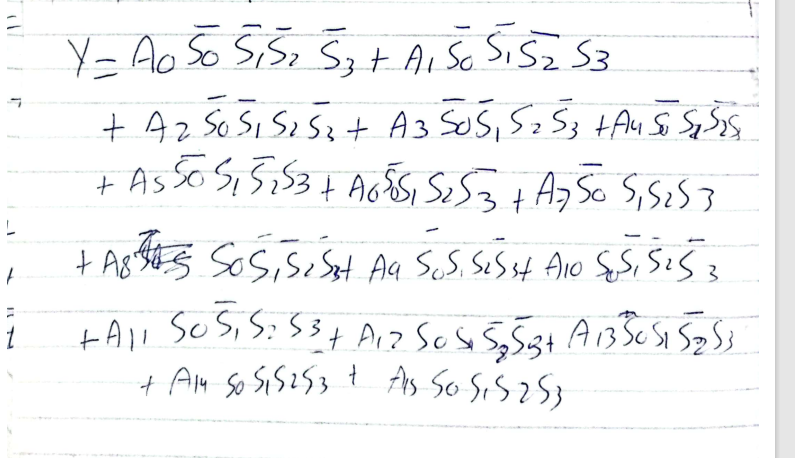 Y = A0 S̅0 S̅1 S̅2 S̅3 + A1 S̅0 S̅1 S̅2 S3
+ A2 S̅0 S̅1 S2 S̅3 + A3 S̅0 S̅1 S2 S̅3 + A4 S̅0 S1 S̅2 S̅3
+ A5 S̅0 S1 S̅2 S3 + A6 S̅0 S1 S2 S̅3 + A7 S̅0 S1 S2 S3
+ A8 S0 S̅1 S̅2 S̅3 + A9 S̅0 S1 S2 S3 + A10 S0 S̅1 S2 S̅3
+ A11 S0 S̅1 S2 S3 + A12 S0 S1 S̅2 S̅3 + A13 S0 S1 S̅2 S3
+ A14 S0 S1 S2 S̅3 + A15 S0 S1 S2 S3